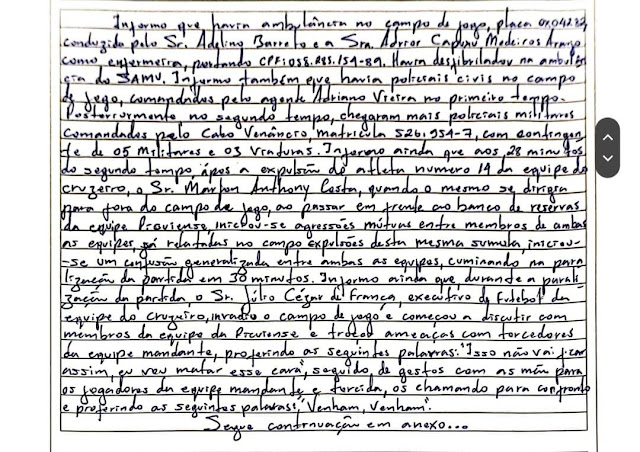 Informo que havia ambulância no campo de jogo, placa
conduzida pelo Sr. Adelino Barreto e a Sra. Medeiros
como enfermeira, portando CPF: Havia desfibrilador na ambulân
cia do SAMU. Informo também que havia policiais civis no campo
de jogo, comandados pelo agente Adriano Vieira no primeiro tempo.
Posteriormente, no segundo tempo, chegaram mais policiais militares
comandados pelo Cabo Venâncio, matrícula 526.954-7, com contingen
te de 05 Militares e 03 Viaturas. Informo ainda que aos 28 minutos
do segundo tempo, após a expulsão do atleta numero 14 da equipe do
cruzeiro, o Sr. Anthony Costa, quando o mesmo se dirigia
para fora do campo de jogo, ao passar em frente ao banco de reservas
da equipe Picuiense, iniciou-se agressões mútuas entre membros de ambas
as equipes, já relatadas no campo expulsões desta mesma sumula, iniciou-
-se um confusão generalizada entre ambas as equipes, cuminando na para
lização da partida em 30 minutos. Informo ainda que durante a parali
zação da partida, o Sr. Júlio Cézar de França, executivo de futebol da
equipe do cruzeiro, invadiu o campo de jogo e começou a discutir com
membros da equipe da Picuiense e trocou ameaças com torcedores
da equipe mandante, proferindo as seguintes palavras: "Isso não vai ficar
assim, eu vou matar esse cara", seguido, de gestos com as mãos para
os jogadores da equipe mandante e torcida, os chamando para confronto
e proferindo as seguintes palavras: "Venham, Venham".
Segue continuação em anexo...